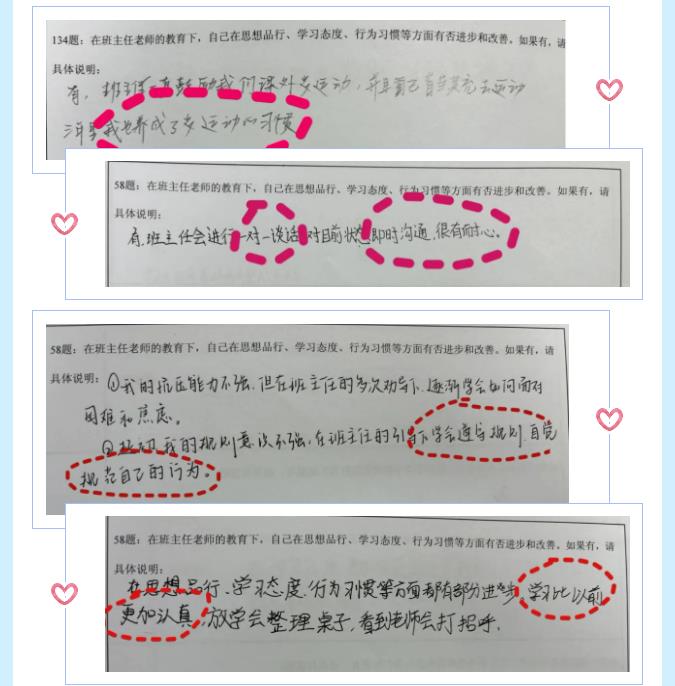 134题：在班主任老师的教育下，自己在思想品行、学习态度、行为习惯等方面有否进步和改善。如果有，请
具体说明：
有，班主任一直鼓励我们课外多运动，并且自己首当其充去运动
我也养成了多运动的习惯
58题：在班主任老师的教育下，自己在思想品行、学习态度、行为习惯等方面有否进步和改善。如果有，请
具体说明：
有，班主任会进行一对一谈话，对目前状态即时沟通，很有耐心。
58题：在班主任老师的教育下，自己在思想品行、学习态度、行为习惯等方面有否进步和改善。如果有，请
具体说明：①我的抗压能力不强，但在班主任的多次劝导下，逐渐学会如何面对
困难和焦虑。
②我的规则意识不强，在班主任的引导下学会遵守规则，自觉
规范自己的行为。
58题：在班主任老师的教育下，自己在思想品行、学习态度、行为习惯等方面有否进步和改善。如果有，请
具体说明：
在思想品行、学习态度、行为习惯等方面都有部分进步，学习比以前
更加认真，放学会整理桌子，看到老师会打招呼。